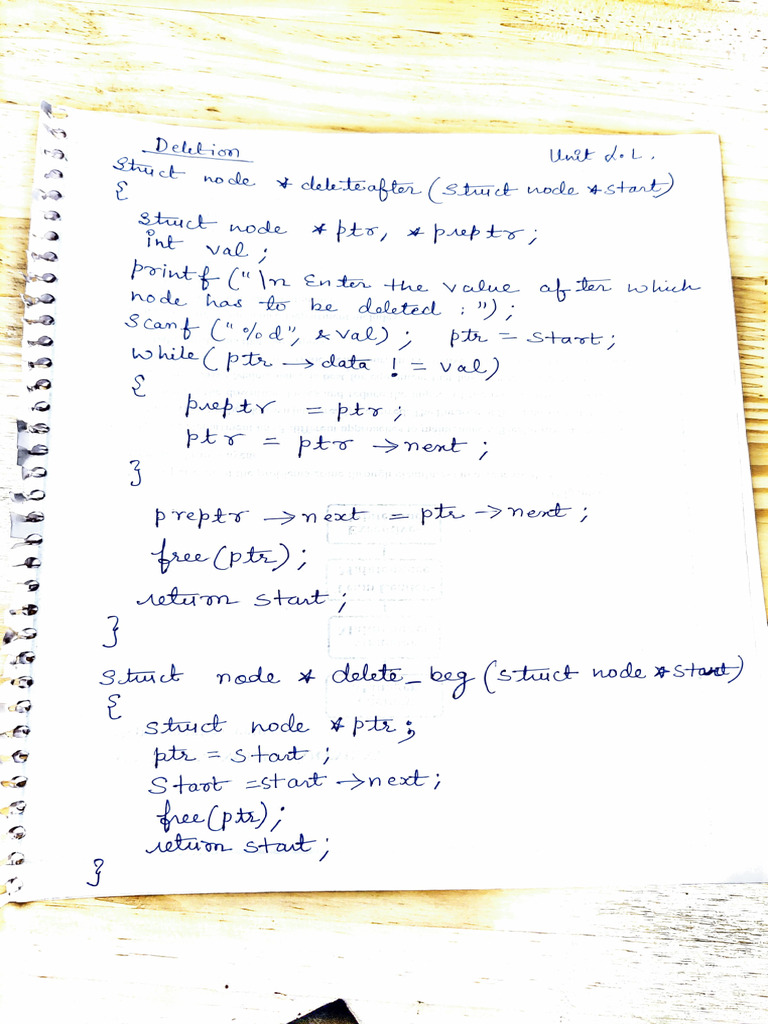 Deletion
Unit L.L.
Struct node * deleteafter (struct node *start)
{
struct node *ptr, *preptr;
int val;
printf ("\n Enter the value after which
node has to be deleted : ");
scanf ("%d", &val); ptr = start;
while (ptr → data != val)
{
preptr = ptr;
ptr = ptr → next;
}
preptr → next = ptr → next;
free(ptr);
return start;
}
struct node * delete_beg (struct node *start)
{
struct node *ptr;
ptr = start;
Start = start → next;
free(ptr);
return start;
}